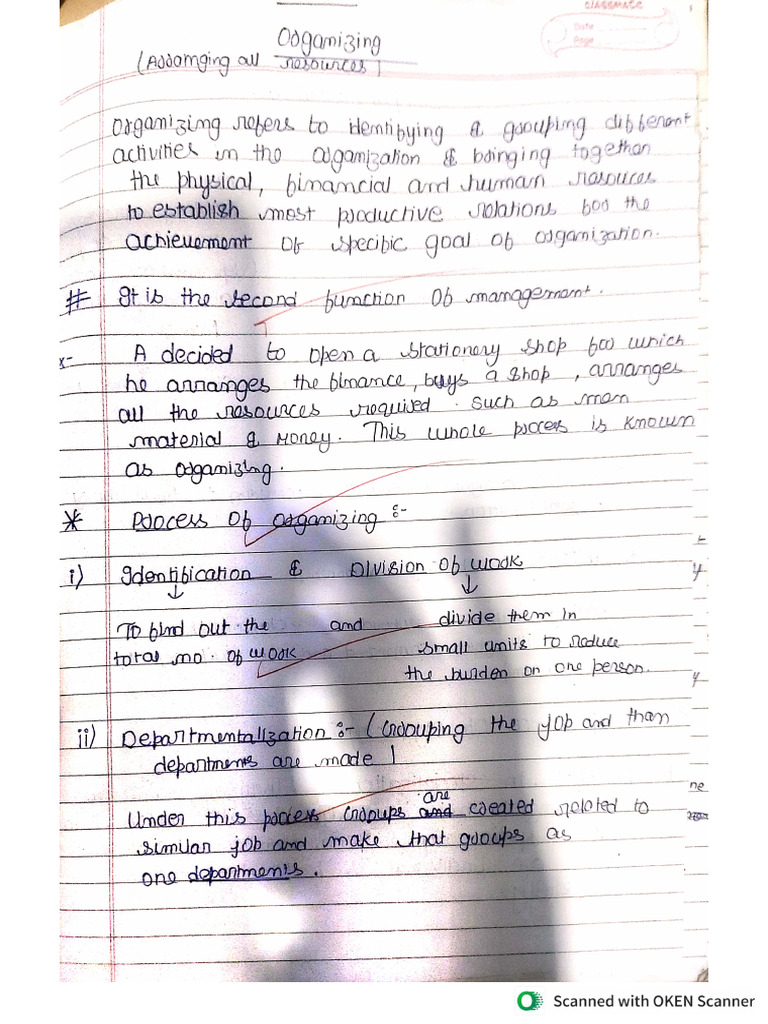 CLASSMATE
Date
Page
Organizing
(Arramging all resources)
Organizing refers to identifying & grouping different
activities in the organization & bringing together
the physical, financial and human resources
to establish most productive relations for the
achievement of specific goal of organization.
# It is the second function of management.
x- A decided to open a stationery shop for which
he arranges the finance, buys a shop, arranges
all the resources required. such as men
material & Money. This whole process is known
as organizing.
* Process of organizing :-
i) Identification & Division of work
↓ ↓
To find out the and divide them in
total no. of work small units to reduce
the burden on one person.
ii) Departmentalization :- (Grouping the job and than
departments are made)
are
Under this process Groups and created related to
similar job and make that groups as
one departments.
y
y
ne
Scanned with OKEN Scanner